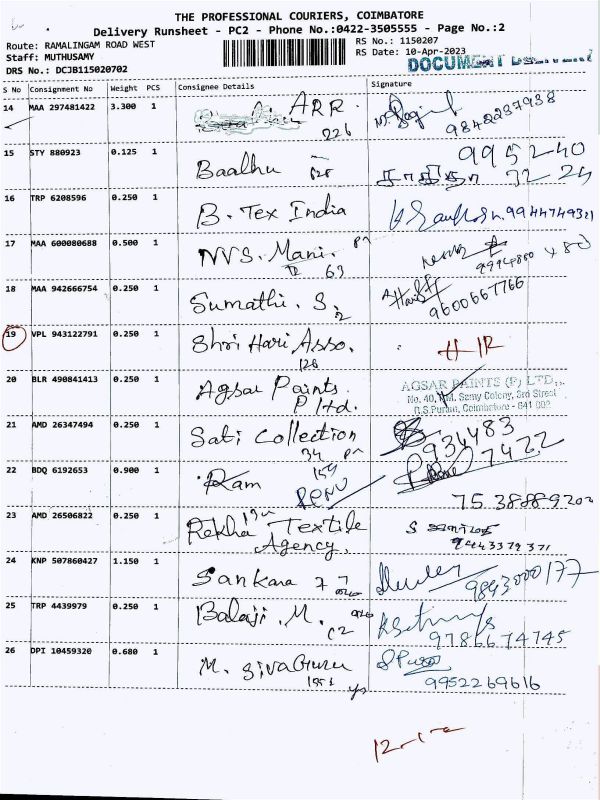 THE PROFESSIONAL COURIERS, COIMBATORE
Delivery Runsheet - PC2 - Phone No.:0422-3505555 - Page No.:2
Route: RAMALINGAM ROAD WEST RS No.: 1150207
Staff: MUTHUSAMY RS Date: 10-Apr-2023
DRS No.: DCJB115020702 DOCUMENT DELIVERY
S No Consignment No Weight PCS Consignee Details Signature
14 MAA 297481422 3.300 1 ARR
226 9842237938
15 STY 880923 0.125 1 Baalhu 995240
128 32 24
16 TRP 6208596 0.250 1 B. Tex India 9944749321
17 MAA 600080688 0.500 1 NVS. Mani.
63 9994800 480
18 MAA 942666754 0.250 1 Sumathi. S.
2 9600667766
19 VPL 943122791 0.250 1 Shri Hari Asso.
128
20 BLR 490841413 0.250 1 Agsar Paints
P Ltd.
AGSAR PAINTS (P) LTD.,
No. 40, Samy Colony, 3rd Street
R.S.Puram, Coimbatore - 641 002
21 AMD 26347494 0.250 1 Sati Collection 934483
34 7422
22 BDQ 6192653 0.900 1 Ram
159
75.38889202
23 AMD 26506822 0.250 1 Rekha Textile
Agency. 9443379371
24 KNP 507860427 1.150 1 Sankara 77 9843000177
25 TRP 4439979 0.250 1 Balaji. M.
C2 9786674745
26 DPI 10459320 0.680 1 M. Sivaguru
9952269616